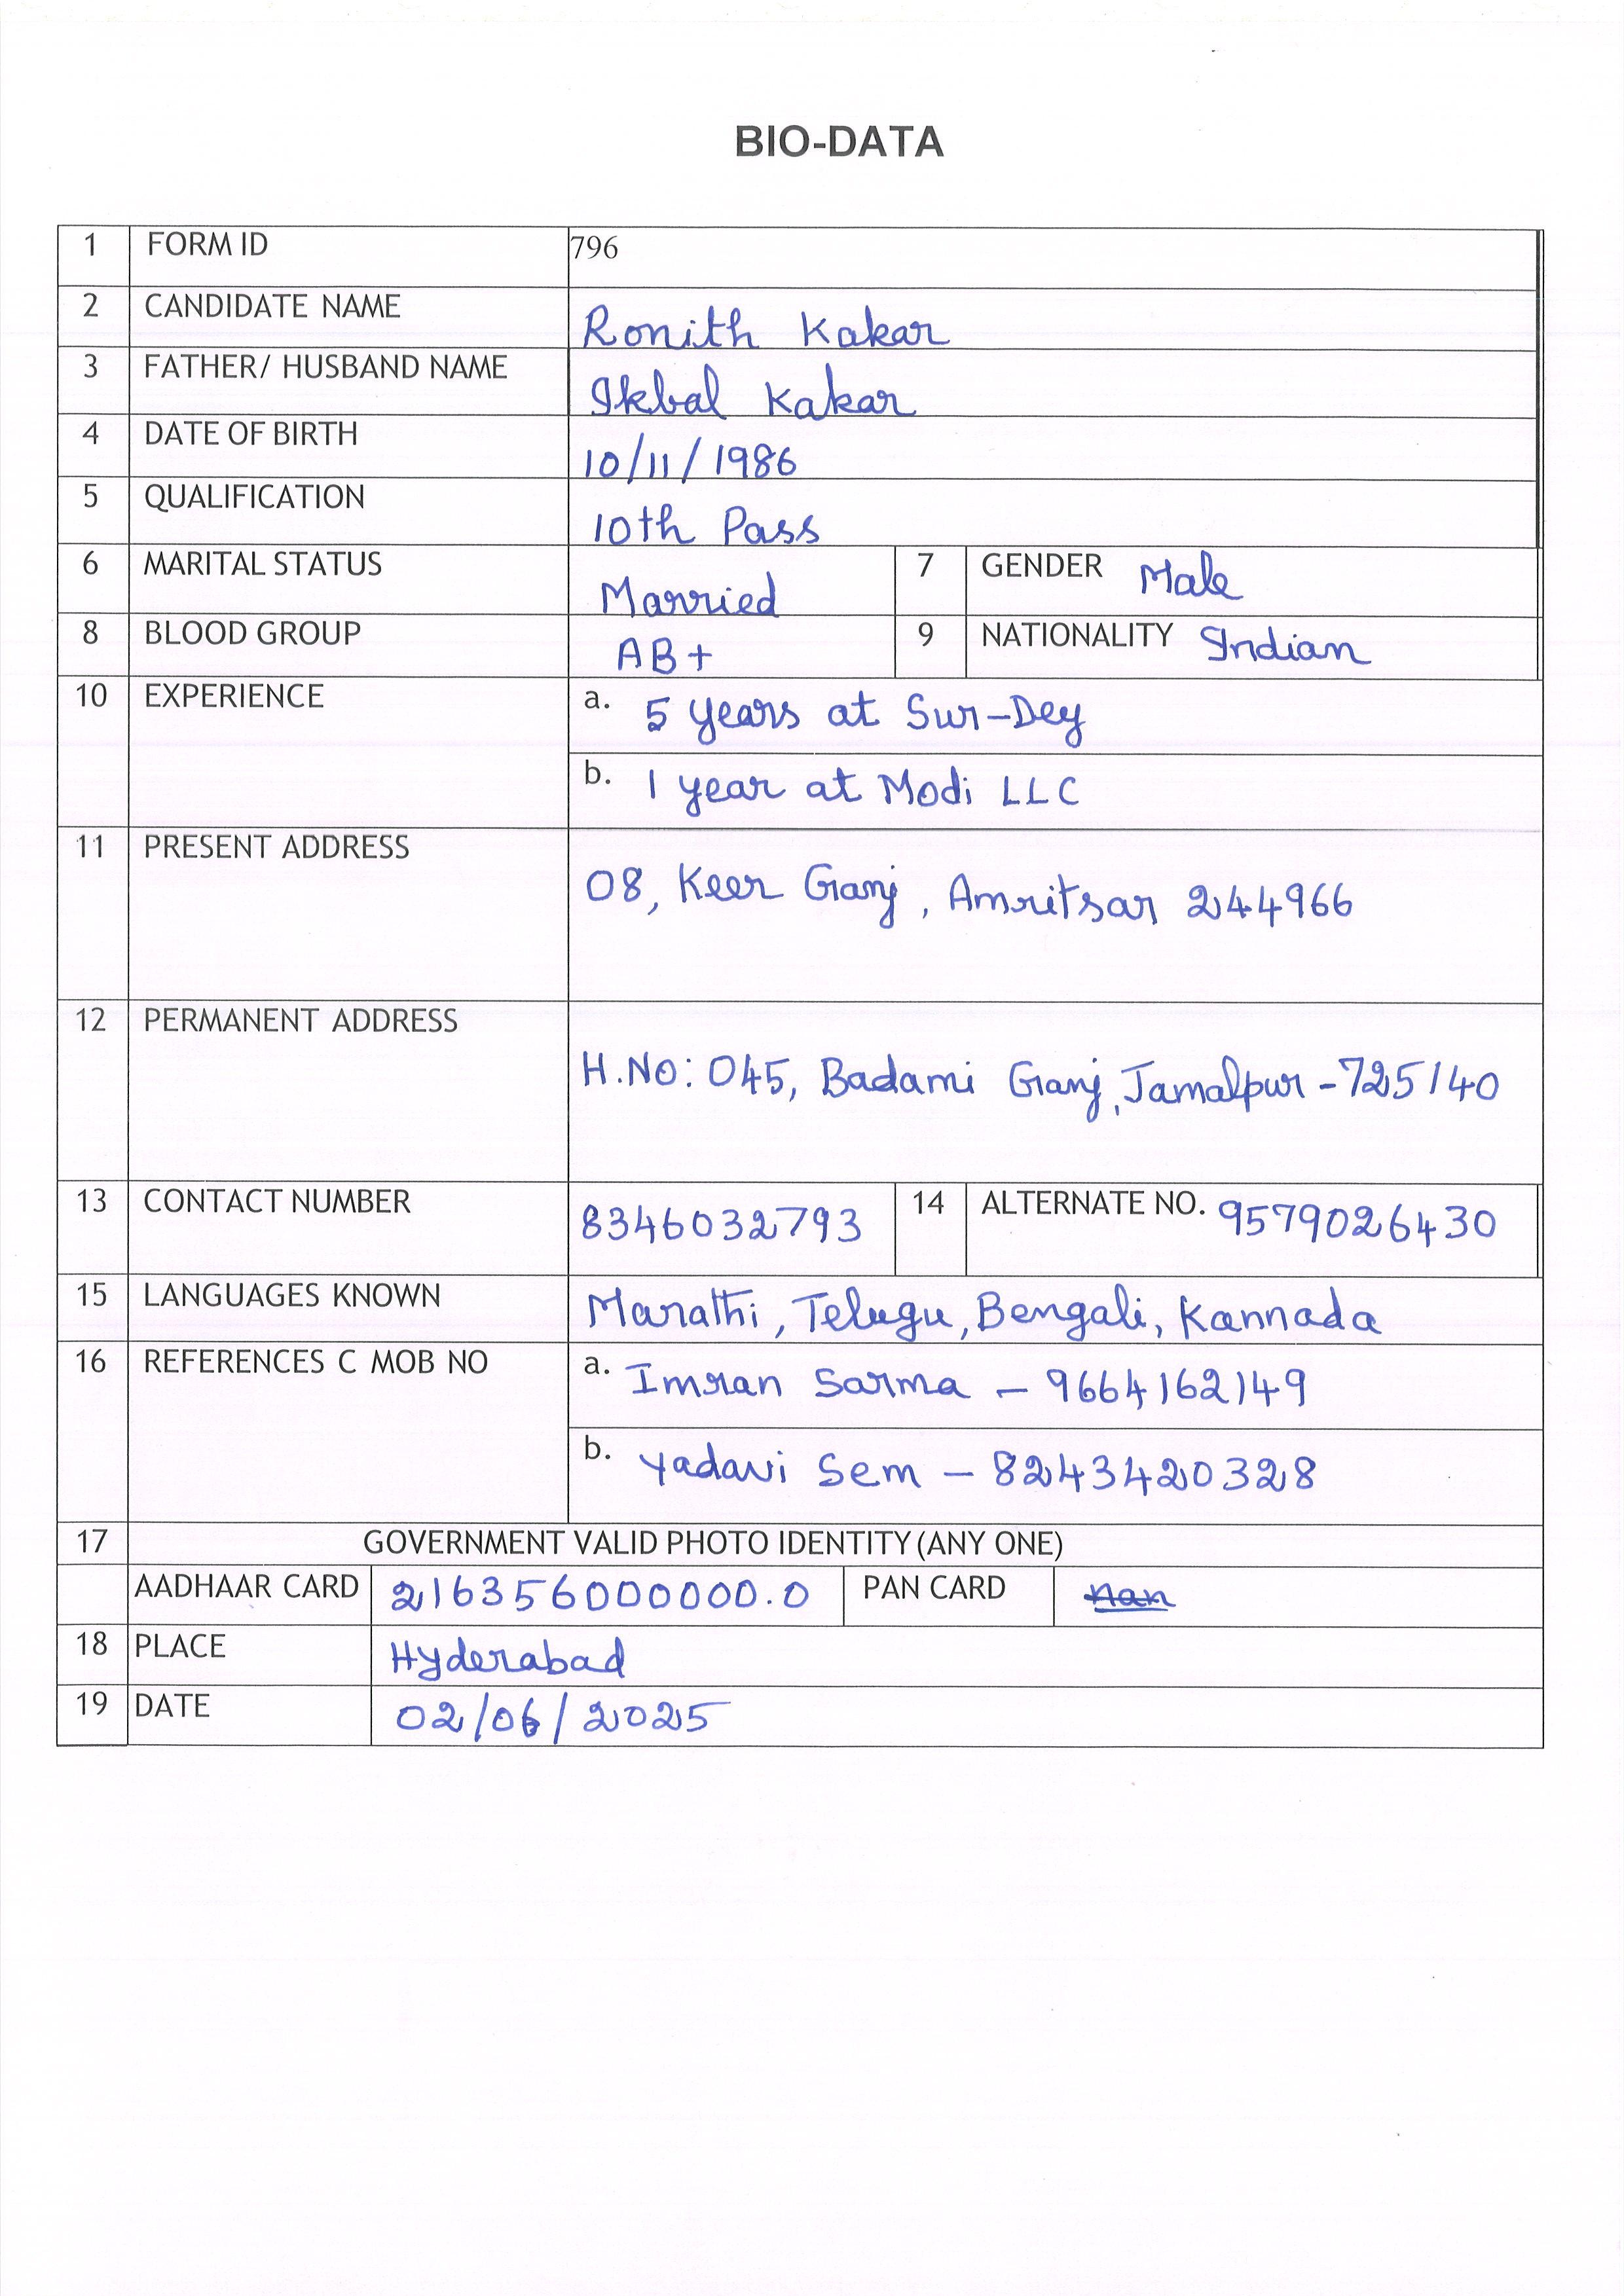 BIO-DATA
1 FORM ID 796
2 CANDIDATE NAME Ronith Kakar
3 FATHER/ HUSBAND NAME Ikbal Kakar
4 DATE OF BIRTH 10/11/1986
5 QUALIFICATION 10th Pass
6 MARITAL STATUS Married 7 GENDER Male
8 BLOOD GROUP AB+ 9 NATIONALITY Indian
10 EXPERIENCE a. 5 years at Sur-Dey
b. 1 year at Modi LLC
11 PRESENT ADDRESS 08, Keer Ganj, Amritsar 244966
12 PERMANENT ADDRESS H.No: 045, Badami Ganj, Jamalpur-725140
13 CONTACT NUMBER 8346032793 14 ALTERNATE NO. 9579026430
15 LANGUAGES KNOWN Marathi, Telugu, Bengali, Kannada
16 REFERENCES C MOB NO a. Imran Sarma - 9664162149
b. Yadavi Sem - 8243420328
17 GOVERNMENT VALID PHOTO IDENTITY (ANY ONE)
AADHAAR CARD 216356000000.0 PAN CARD nan
18 PLACE Hyderabad
19 DATE 02/06/2025